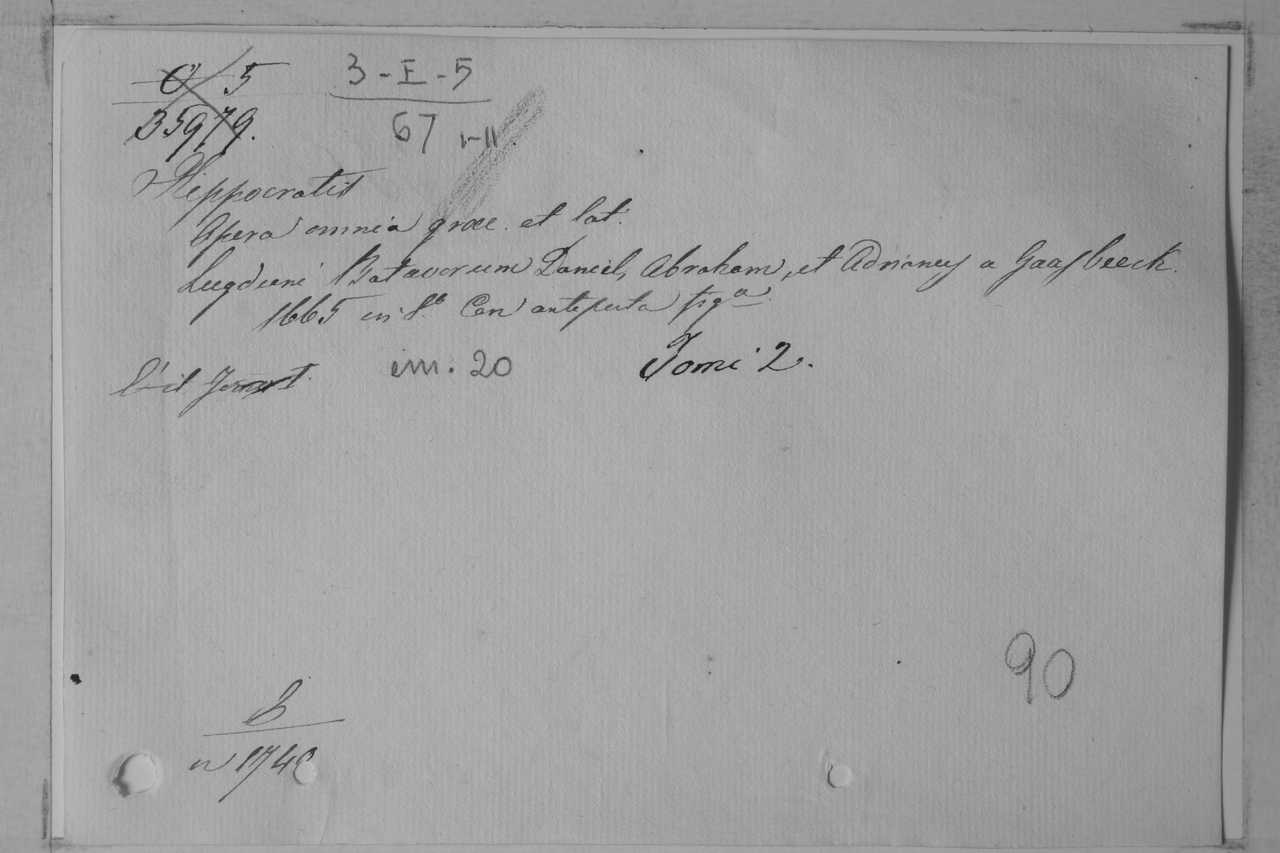 O 5 3-I-5
35979. 67 I-II
Hippocratis
Opera omnia graec. et lat.
Lugduni Batavorum Daniel, Abraham, et Adrianus a Gaasbeeck.
1665 in 8.º Con anteporta fig.ª
im. 20 Tomi 2.
90
B
n 174